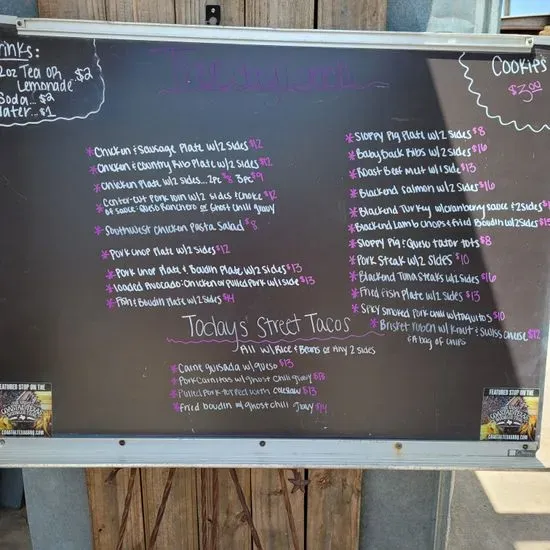 Drinks:
2oz Tea OR
Lemonade $2
Soda... $2
Water... $1
COOKIES
$3.00
*Chicken & Sausage Plate w/2 sides $12
*Chicken & Country Rino Plate w/2 sides $12
*Chicken Plate w/2 sides... 2pc $8 3pc $9
*Center-cut Pork loin w/2 sides & choke $12
of sauce: Queso Ranchero or Ghost Chili gravy
*Southwest Chicken Pasta Salad $8
*Pork chop Plate w/2 sides $12
*Pork chop Plate & Boudin Plate w/2 sides $13
*Loaded Avocado: Chicken or Pulled Pork w/1 side $13
*Fish & Boudin Plate w/2 sides $14
*Sloppy Pig Plate w/2 sides $8
*Baby Back Ribs w/2 sides $16
*Roast Beef melt w/1 side $13
*Blackend Salmon w/2 sides $16
*Blackend Turkey w/cranberry sauce & 2 sides
*Blackend Lamb Chops & Fried Boudin w/2 sides
*Sloppy Pig & Queso tator tots $8
*Pork Steak w/2 sides $10
*Blackend Tuna Steaks w/2 sides $16
*Fried Fish Plate w/2 sides $13
*Spicy smoked Pork chili w/taquitos $10
*Brisket ruben w/ Kraut & Swiss Cheese $12
& A bag of chips
Today's Street Tacos
All w/Rice & Beans or Any 2 sides
*Carne guisada w/queso $13
*Pork Carnitas w/ghost chili gravy $13
*Pulled Pork topped with coleslaw $13
*Fried boudin w/ghost chili gravy $14
FEATURED STOP ON THE
COASTAL TEXAS BBQ
COASTALTEXASBBQ.COM
FEATURED STOP ON THE
COASTAL TEXAS BBQ
COASTALTEXASBBQ.COM